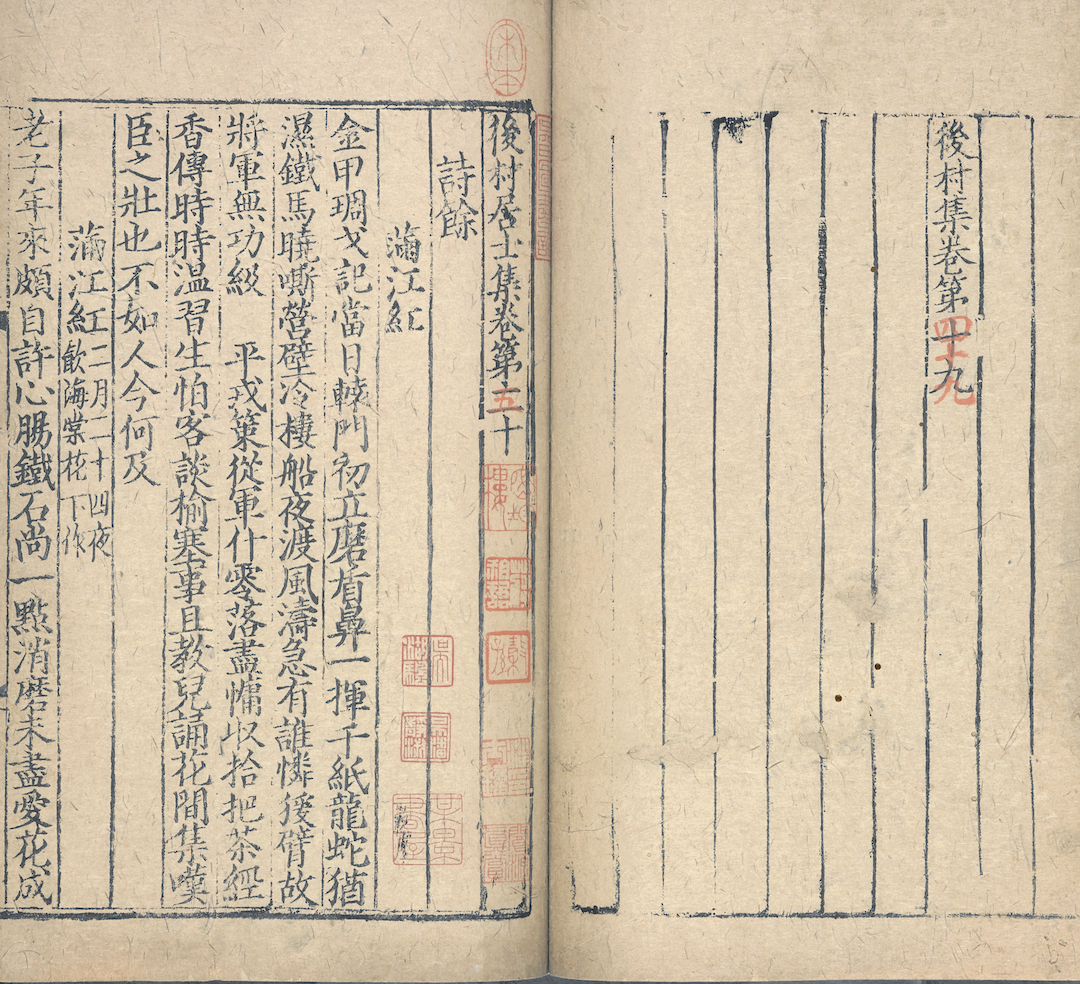 後村集卷第四十九
後村居士集卷第五十
詩餘
滿江紅
金甲琱戈記當日轅門初立磨盾鼻一揮千紙龍蛇猶
濕鐵馬曉嘶營壁冷樓船夜渡風濤急有誰憐猨臂故
將軍無功級　平戎策從軍什零落盡慵收拾把茶經
香傳時時温習生怕客談榆塞事且教兒誦花間集嘆
臣之壯也不如人今何及
滿江紅二月二十四夜
飲海棠花下作
老子年來頗自許心腸鐵石尚一點消磨未盡愛花成